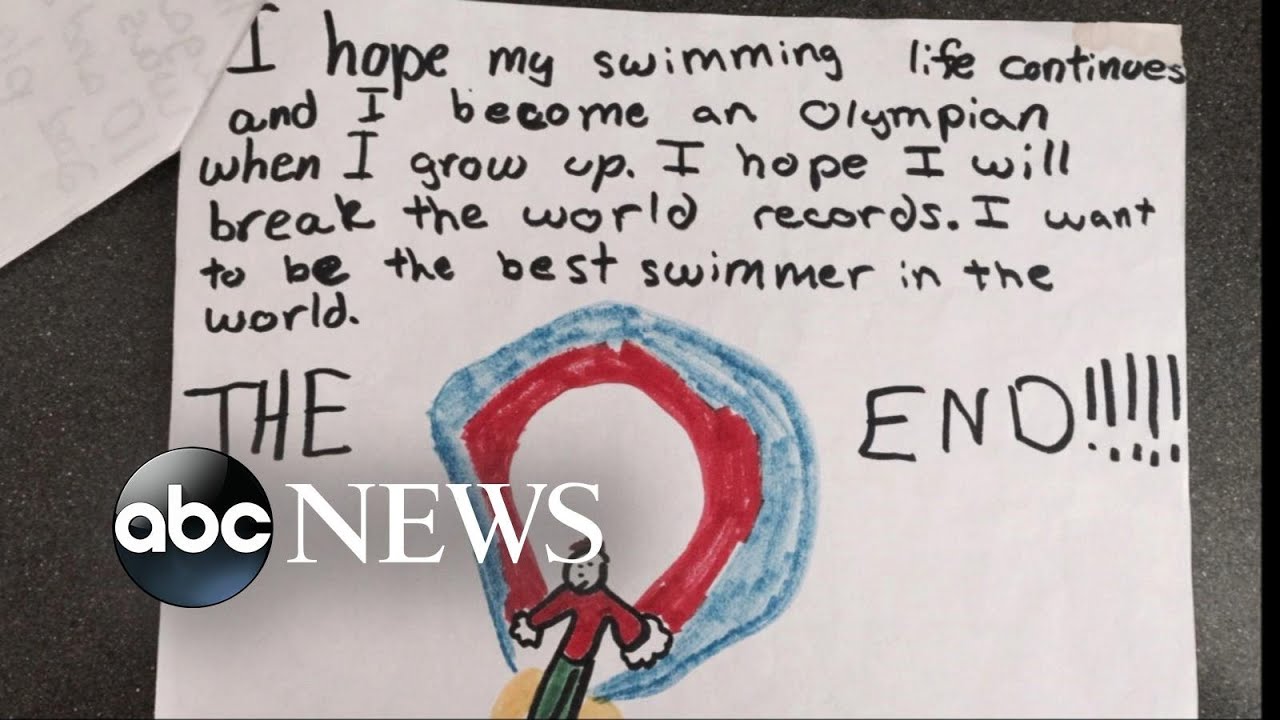 I hope my swimming life continues
and I become an Olympian
when I grow up. I hope I will
break the world records. I want
to be the best swimmer in the
world.
THE END!!!!!
abc NEWS